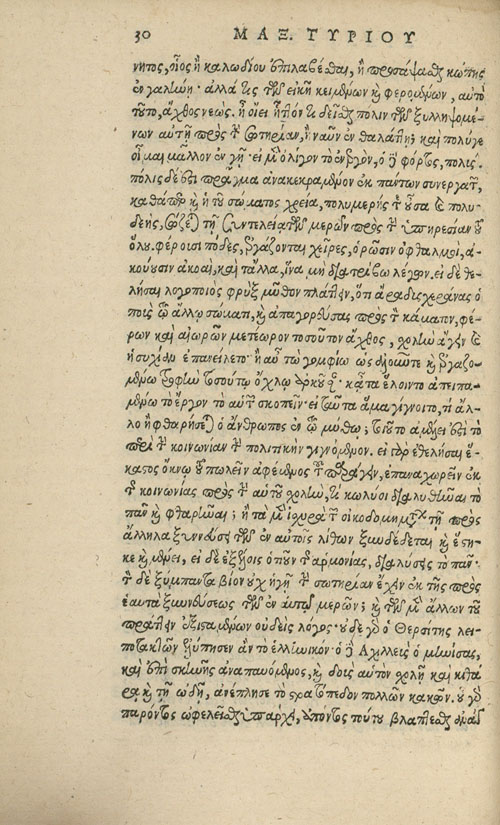 30 ΜΑΞ. ΤΥΡΙΟΥ
νητος, πῖος ἢ καλωδίου ἐπιλαβέσθαι, ἢ προσάψασθαι κώπης
ἐν γαλήνῃ· ἀλλά τις τῶν εἰκῆ κειμένων καὶ φερομένων, αὐτὸ
τοῦτο, ἄχθος νεώς. ἢ οἴει ἧττόν τι δεῖσθαι πόλιν τῶν ξυλληψομέ-
νων αὐτῇ πρὸς τὴν σωτηρίαν, ἢ ναῦν ἐν θαλάττῃ; καὶ πολύ γε
οἶμαι μᾶλλον ἐν γῇ· εἰ μὲν ὀλίγον τὸ ἐνδέον, ὁ δὲ φόρτος, πολύς.
πόλις δέ ἐστι πρᾶγμα ἀνακεκραμένον ἐκ πάντων συνεργατῶν,
καθάπερ καὶ ἡ τοῦ σώματος χρεία, πολυμερής τε οὖσα καὶ πολυ-
δεής, σώζεται τῇ συντελείᾳ τῶν μερῶν πρὸς τὴν ὑπηρεσίαν τοῦ
ὅλου. φέρουσι πόδες, ἐργάζονται χεῖρες, ὁρῶσιν ὀφθαλμοί, ἀ-
κούουσιν ἀκοαί, καὶ τἄλλα, ἵνα μὴ διατρίβω λέγων. εἰ δὲ θε-
λήσαι λογοποιὸς φρὺξ μῦθον πλάττειν, ὅτι ἄρα δυσχεράνας ὁ
ποῦς τῷ ἄλλῳ σώματι, καὶ ἀπαγορεύσας πρὸς τὸν κάματον, φέ-
ρων καὶ αἰωρῶν μετέωρον τοσοῦτον ἄχθος, σχολὴν ἄγειν καὶ
ἡσυχίαν ἐπανείλετο· ἢ αὖ τὼ γομφίω ὡς ἀλοῦντε καὶ ἐργαζο-
μένω τροφὴν τοσούτῳ ὄχλῳ
μένω τὸ ἔργον τὸ αὑτῶν σκοπεῖν· εἰ ταῦτα ἅμα γίγνοιτο, τί ἄλ-
λο ἢ φθαρήσεται ὁ ἄνθρωπος ἐν τῷ μύθῳ; τοιοῦτο ἀμέλει ἐστὶ τὸ
περὶ τὴν κοινωνίαν τὴν πολιτικὴν γιγνόμενον. εἰ γὰρ ἐθελήσαι ἕ-
καστος ὄκνῳ τοῦ πονεῖν ἀφέμενος τοῦ πράττειν, ἐπαναχωρεῖν ἐκ
τῆς κοινωνίας πρὸς τὴν αὑτοῦ σχολήν, τί κωλύσει διαλυθῆναι τὸ
πᾶν καὶ φθαρῆναι; ἢ τὰ μὲν ἰσχυρὰ τῶν οἰκοδομημάτων τῇ πρὸς
ἄλληλα ξυννεύσει τῶν ἐν αὐτοῖς λίθων ξυνδέδεται καὶ ἕστη-
κε καὶ μένει, εἰ δὲ ἐξέλοις ὁτιοῦν τῆς ἁρμονίας, διαλύσεις τὸ πᾶν·
τὸν δὲ ξύμπαντα βίον οὐχ ἡγῇ τὴν σωτηρίαν ἔχειν ἐκ τῆς πρὸς
ἑαυτὰ ξυννεύσεως τῶν ἐν αὐτῷ μερῶν; καὶ τῶν μὲν ἄλλων τοῦ
πράττειν ἐξισταμένων οὐδεὶς λόγος· οὐδὲ γὰρ ὁ Θερσίτης λει-
ποτακτῶν ἐλύπησεν ἂν τὸ ἑλληνικόν· ὁ δὲ Ἀχιλλεὺς ὁ μηνίσας,
καὶ ἐπὶ σκηνῆς ἀναπαυόμενος, καὶ δοὺς αὑτὸν σχολῇ καὶ κιθά-
ρᾳ καὶ τῇ ᾠδῇ, ἀνέπλησε τὸ στρατόπεδον πολλῶν κακῶν. οὗ γὰρ
παρόντος ὠφελεῖσθαι ὑπάρχει, ἀπόντος τούτου βλάπτεσθαι